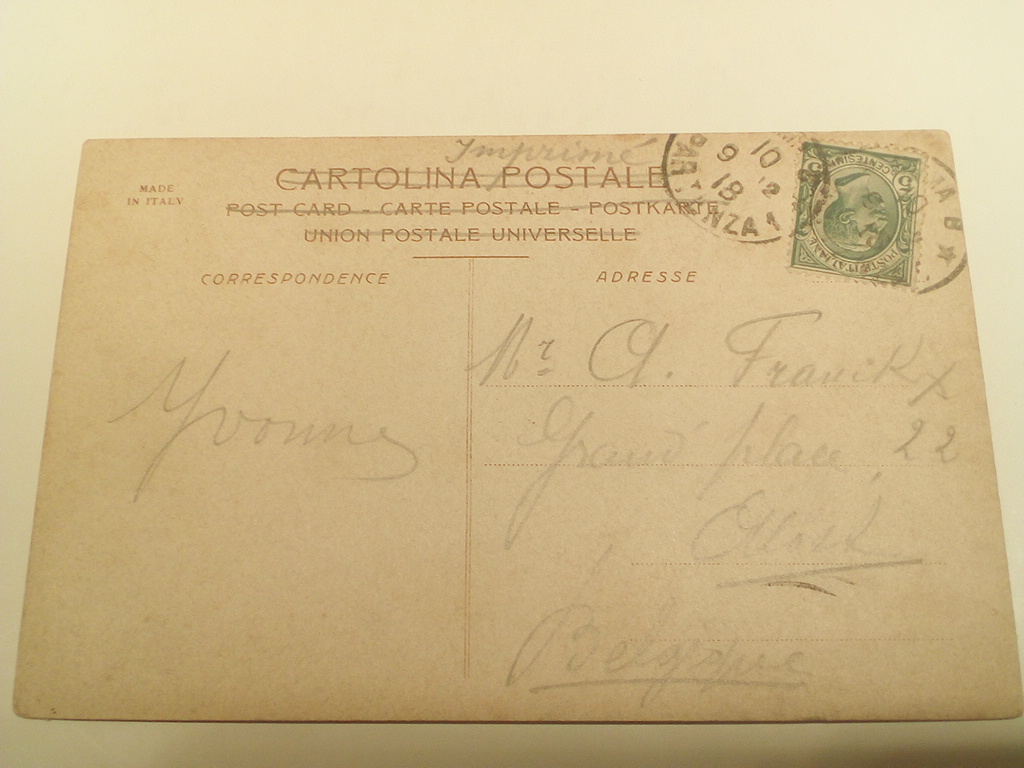 Imprimé
CARTOLINA POSTALE
POST CARD - CARTE POSTALE - POSTKARTE
UNION POSTALE UNIVERSELLE
MADE
IN ITALY
CORRESPONDENCE
ADRESSE
10
9 12
18
PARTENZA
5 CENTESIMI 5
POSTE ITALIANE
Yvonne
Mr A. Franckx
Grand place, 22
Alost
Belgique